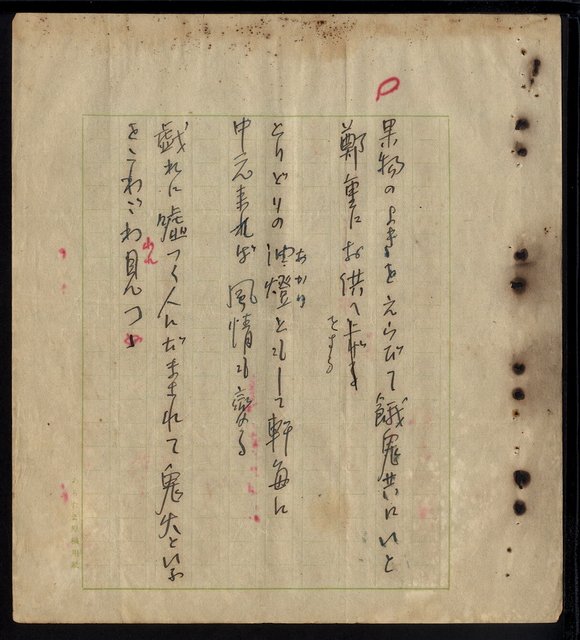 果物のよきをえらびて餓鬼共にいと
鄭重にお供へ
をする
とりどりの油燈ともして軒毎に
あかり
中元来れば風情も変る
戯れに嘘つく人にだまされて鬼火といふ
をこわごわ見つゝ